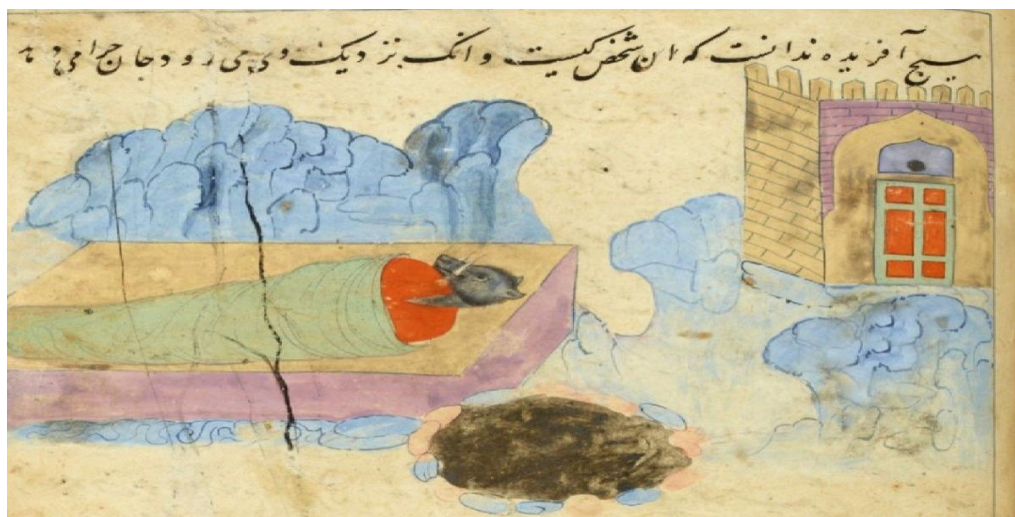 هیچ آفریده ندانست که ان شخص کیست و انک بنزدیک وی می رود جان چرا می دهد